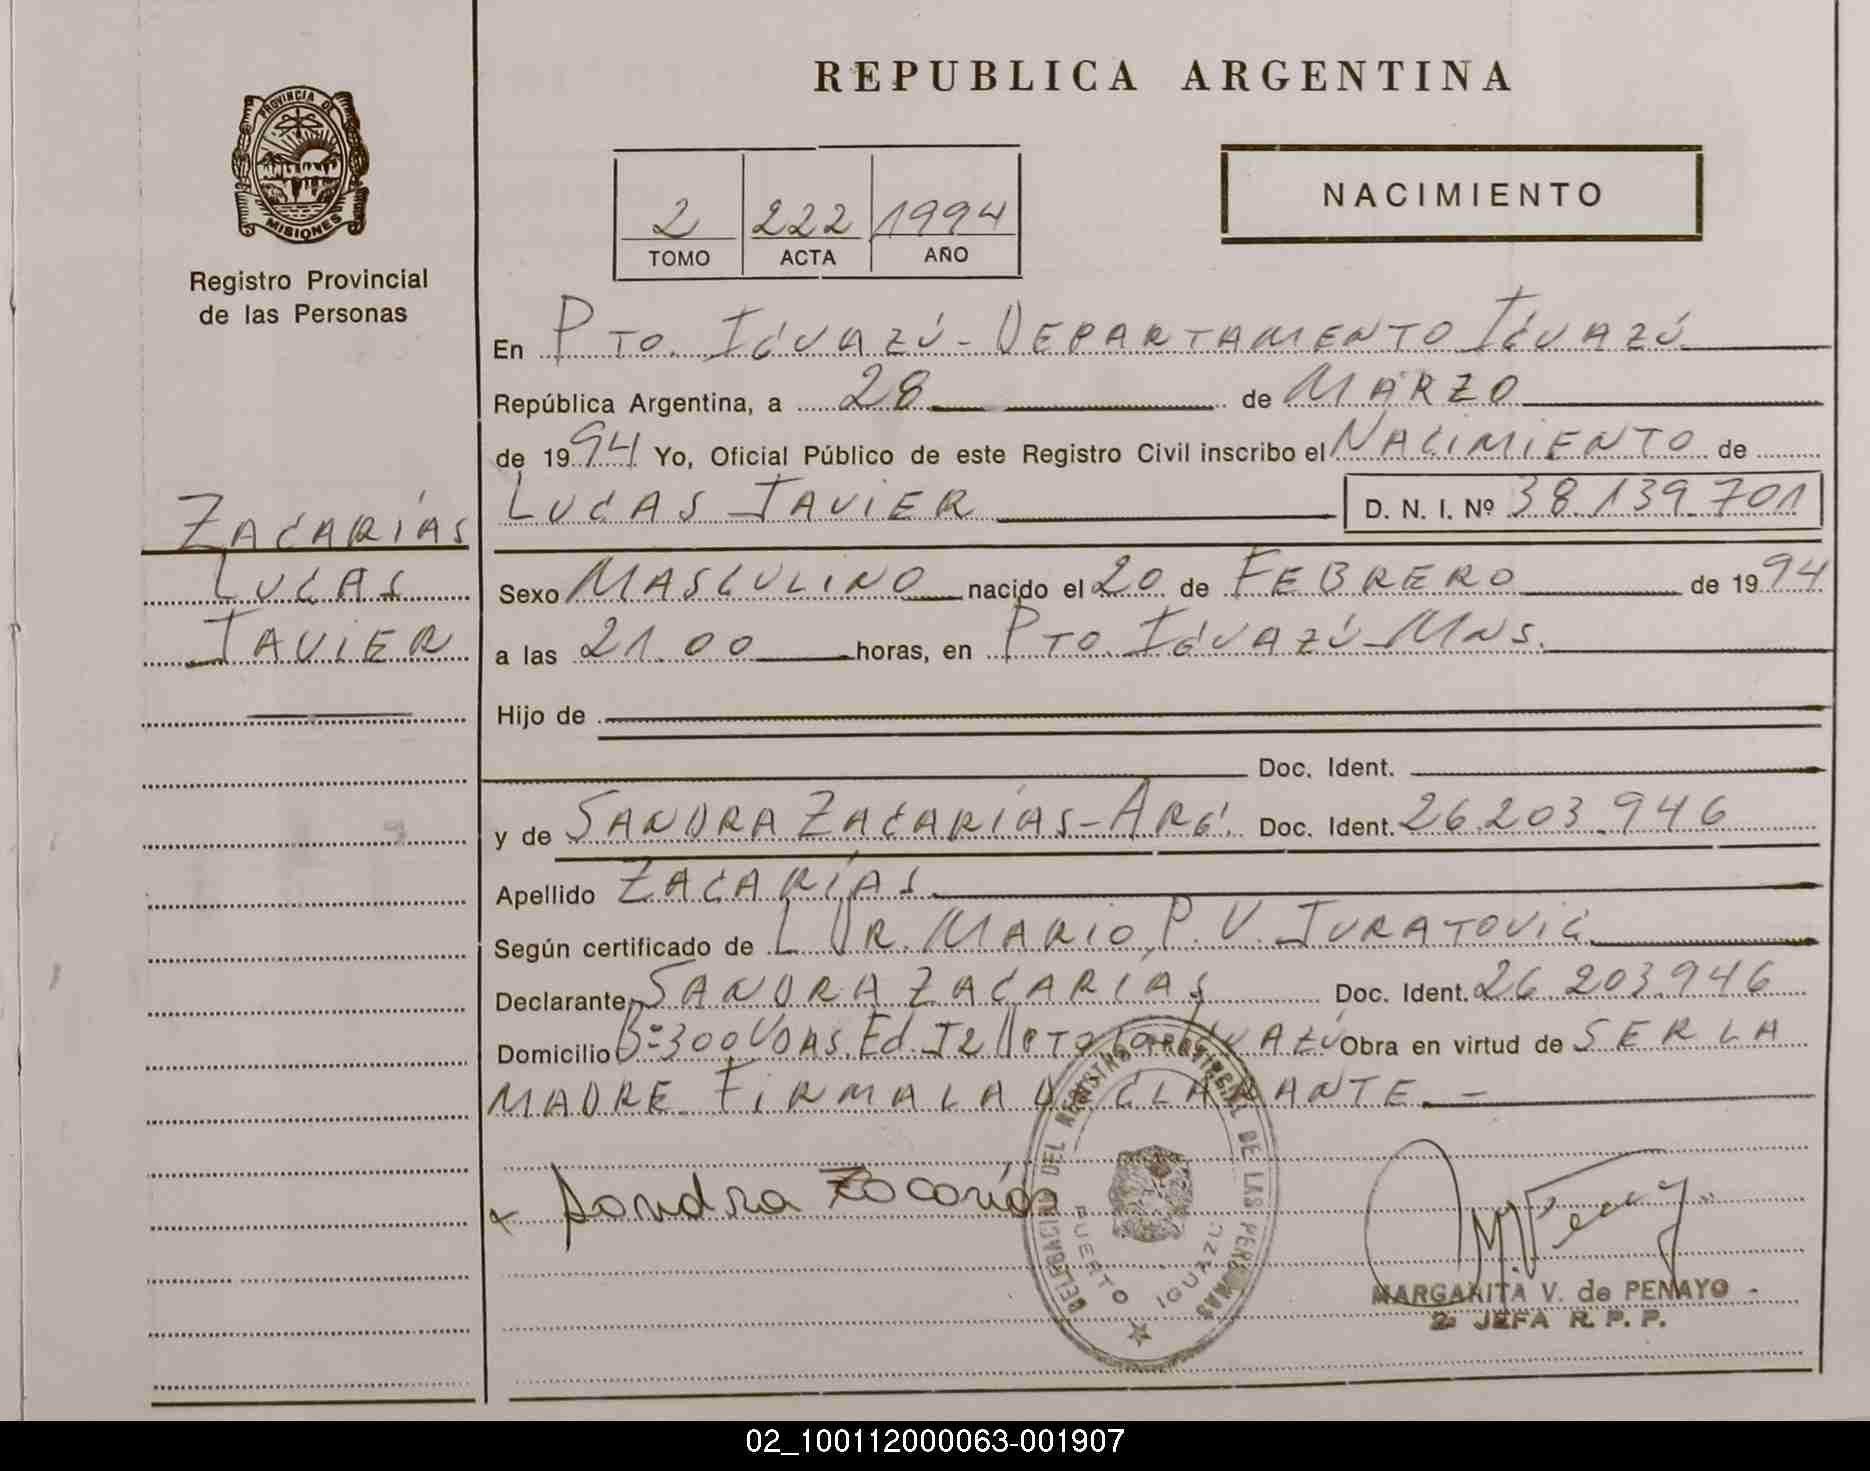 REPUBLICA ARGENTINA
PROVINCIA DE
MISIONES
Registro Provincial
de las Personas
2 222 1994
TOMO ACTA AÑO
NACIMIENTO
En PTO. IGUAZÚ - DEPARTAMENTO IGUAZÚ
República Argentina, a 28 de MARZO
de 1994 Yo, Oficial Público de este Registro Civil inscribo el NACIMIENTO de
LUCAS JAVIER D. N. I. Nº 38.139.701
ZACARÍAS
LUCAS
JAVIER
Sexo MASCULINO nacido el 20 de FEBRERO de 1994
a las 21.00 horas, en PTO. IGUAZÚ - MNS.
Hijo de
Doc. Ident.
y de SANDRA ZACARÍAS - ARG. Doc. Ident. 26.203.946
Apellido ZACARÍAS
Según certificado de L DR. MARIO P. V. JURATOVIC
Declarante SANDRA ZACARIAS Doc. Ident. 26.203.946
Domicilio Bº 300 Ed. IGUAZÚ Obra en virtud de SER LA
MADRE FIRMA LA DECLARANTE. -
Sandra Zacarías
DELEGACION DEL REGISTRO PROVINCIAL DE LAS PERSONAS
PUERTO IGUAZU
MARGARITA V. de PENAYO
2ª JEFA R. P. P.
02_100112000063-001907